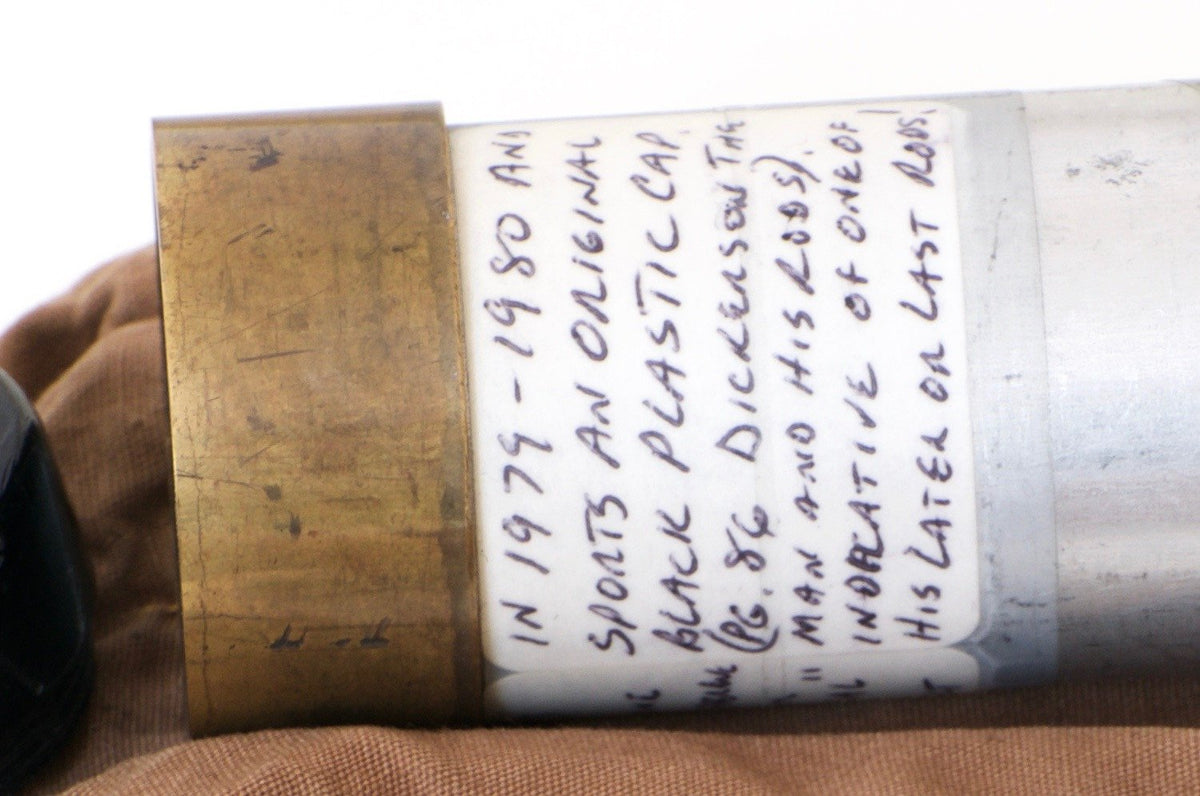 IN 1979-1980 AND
SPORTS AN ORIGINAL
BLACK PLASTIC CAP.
(PG. 86 DICKERSON THE
MAN AND HIS RODS).
INDICATIVE OF ONE OF
HIS LATER OR LAST RODS!